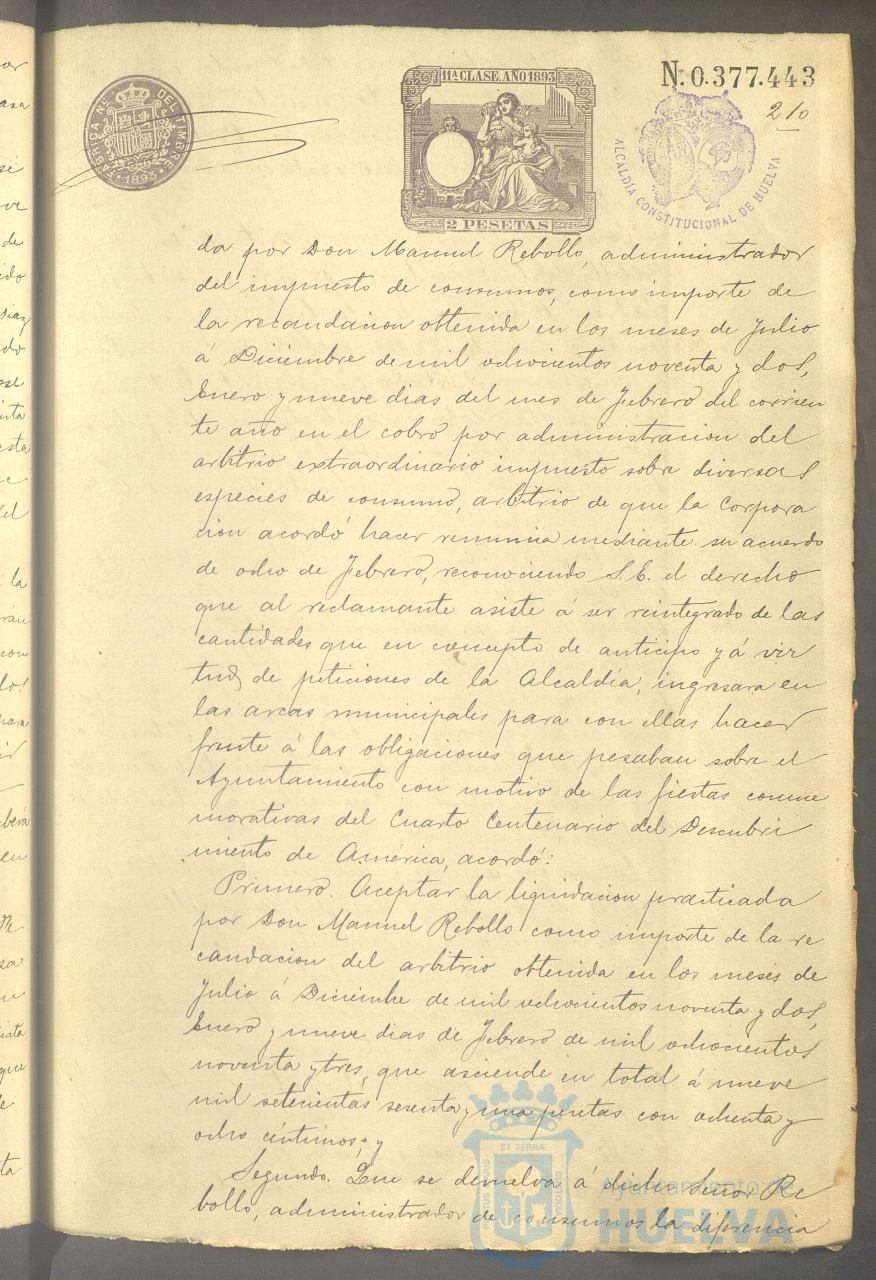 FÁBRICA Nal DEL TIMBRE
1893
11ª CLASE. AÑO 1893
2 PESETAS
Nº 0.377.443
210
ALCALDÍA CONSTITUCIONAL DE HUELVA
da por Don Manuel Rebollo, administrador
del impuesto de consumos, como importe de
la recaudacion obtenida en los meses de Julio
á Diciembre de mil ochocientos noventa y dos,
Enero y nueve dias del mes de Febrero del corrien
te año en el cobro por administracion del
arbitrio extraordinario impuesto sobre diversas
especies de consumo, arbitrio de que la Corpora
cion acordó hacer renuncia mediante su acuerdo
de ocho de Febrero, reconociendo S.E. el derecho
que al reclamante asiste á ser reintegrado de las
cantidades que en concepto de anticipo y á vir
tud de peticiones de la Alcaldía, ingresara en
las arcas municipales para con ellas hacer
frente á las obligaciones que pesaban sobre el
Ayuntamiento con motivo de las fiestas conme
morativas del Cuarto Centenario del Descubri
miento de América, acordó:
Primero. Aceptar la liquidacion practicada
por Don Manuel Rebollo como importe de la re
caudacion del arbitrio obtenida en los meses de
Julio á Diciembre de mil ochocientos noventa y dos,
Enero y nueve dias de Febrero de mil ochocientos
noventa y tres, que asciende en total á nueve
mil setecientas sesenta y una pesetas con ochenta y
ocho céntimos; y
Segundo. Que se devuelva á dicho Señor Re
bollo, administrador de consumos la diferencia
Ayuntamiento de
HUELVA